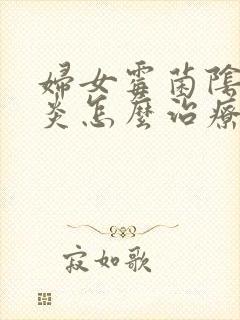 婦女霉菌陰
炎怎麼治療
寂如歌